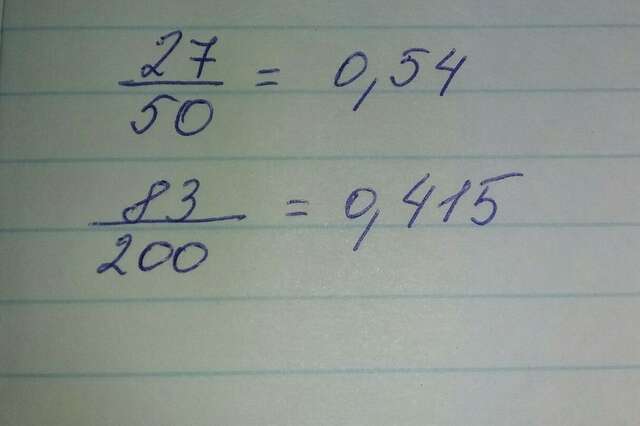 27/50 = 0,54
83/200 = 0,415